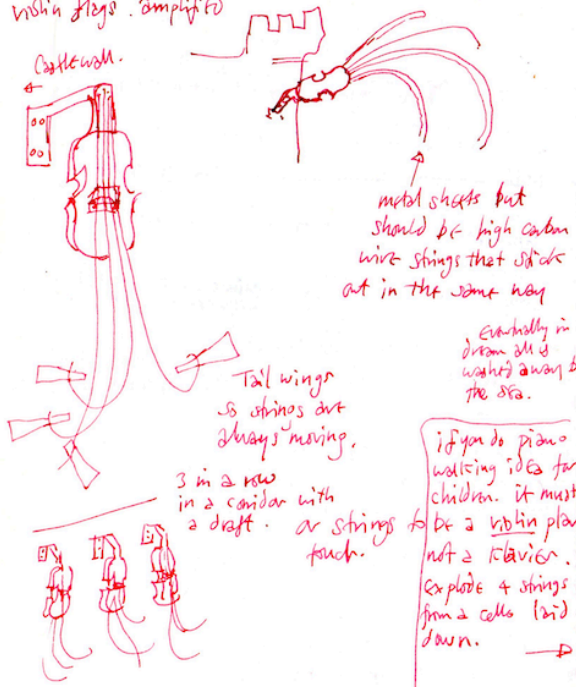 violin flags. amplified
Castle wall.
metal sheets but
should be high carbon
wire strings that stick
out in the same way
Eventually in
dream all is
washed away b
the sea.
Tail wings
so strings are
always moving.
3 in a row
in a coridor with
a draft.
or strings to
touch.
if you do piano
walking idea for
children. it must
be a violin plan
not a klavier.
explode 4 strings
from a cello laid
down.